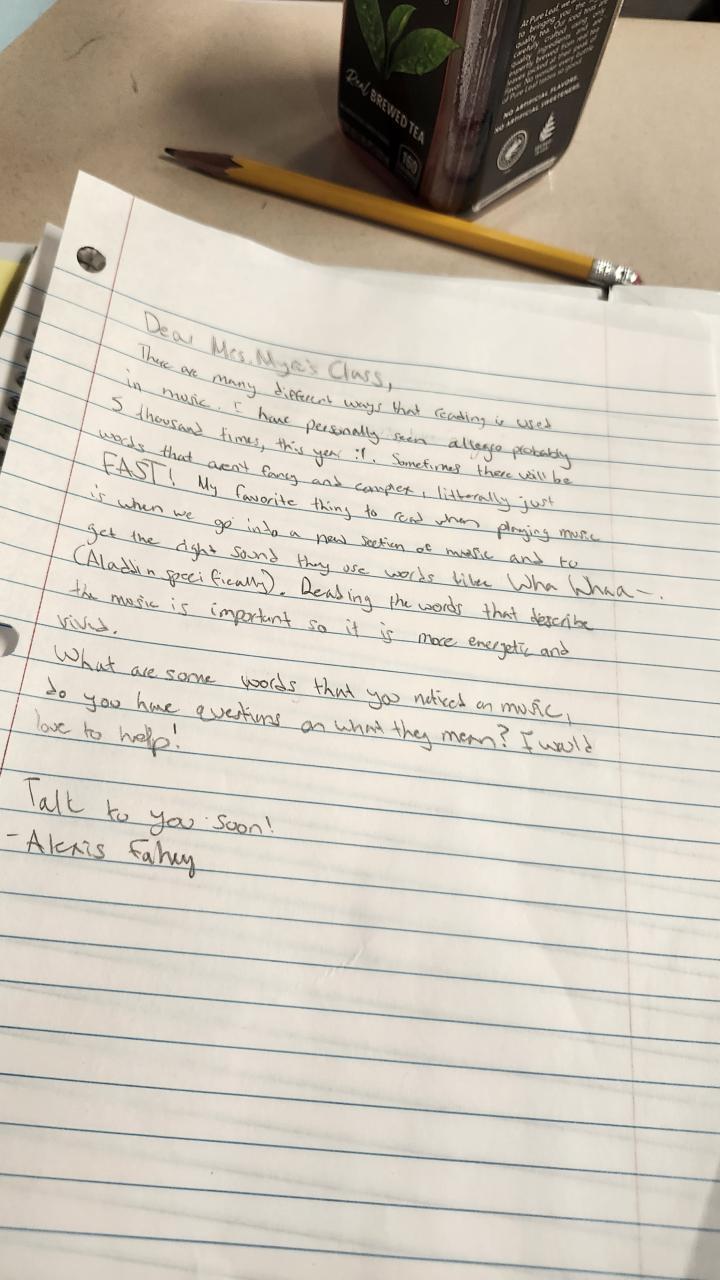 At Pure Leaf, we
to bringing you the
quality tea. Our iced teas are
carefully crafted using only
quality ingredients and are
expertly brewed from real tea
leaves picked at their peak of
flavor. No wonder every bottle
of Pure Leaf tastes so good
NO ARTIFICIAL FLAVORS.
NO ARTIFICIAL SWEETENERS.
Real BREWED TEA
160
Dear Mrs. Myre's Class,
There are many different ways that reading is used
in music. I have personally seen allegro probably
5 thousand times, this year :|. Sometimes there will be
words that aren't fancy and complex, litterally just
FAST! My favorite thing to read when playing music
is when we go into a new section of music and to
get the right sound they use words like: Wha Whaa~.
(Aladdin specifically). Reading the words that describe
the music is important so it is more energetic and
vivid.
What are some words that you noticed on music,
do you have questions on what they mean? I would
love to help!
Talk to you soon!
- Alexis Fahey